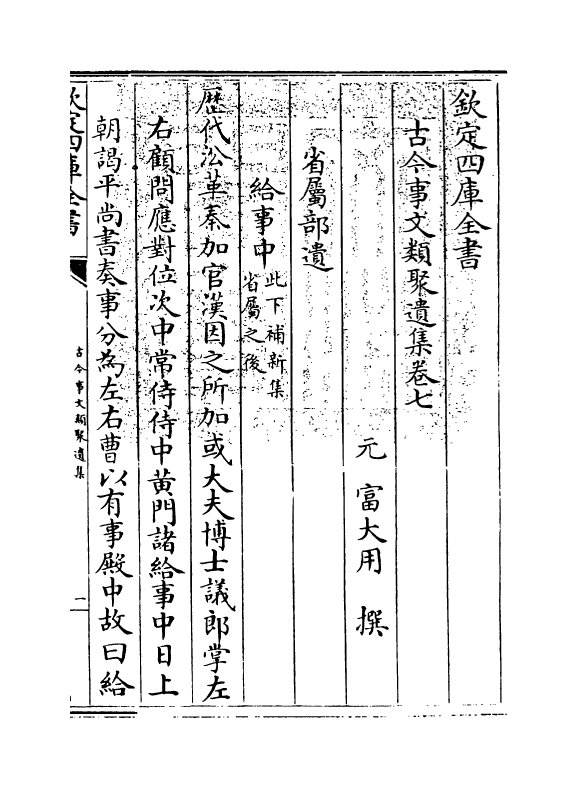 欽定四庫全書
古今事文類聚遺集卷七
元 富大用 撰
省屬部遺
給事中此下補新集
省屬之後
歷代沿革秦加官漢因之所加或大夫博士議郎掌左
右顧問應對位次中常侍侍中黃門諸給事中日上
朝謁平尚書奏事分為左右曹以有事殿中故曰給
欽定四庫全書
古今事文類聚遺集
一